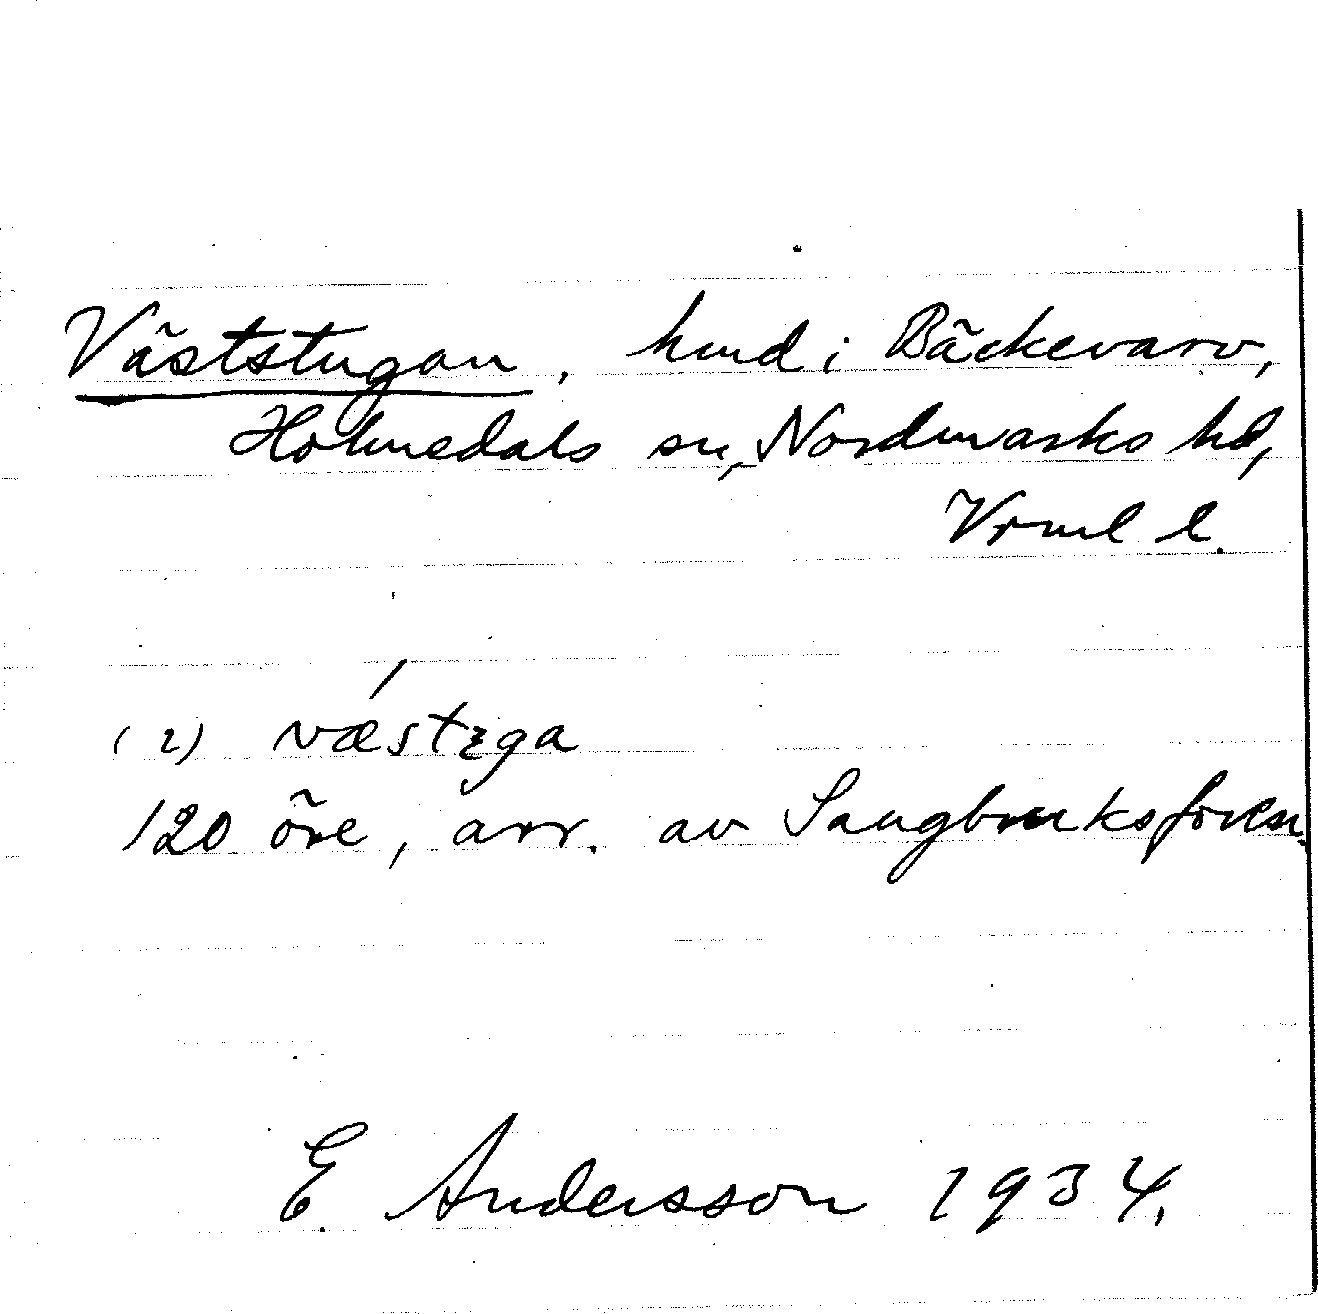 Väststugan, hmd i Bäckevarv,
Holmedals sn, Nordmarks hd,
Vrml l.
(2) væstꝫga
120 öre, arr. av Saugbruksfören.
E. Andersson 1934.